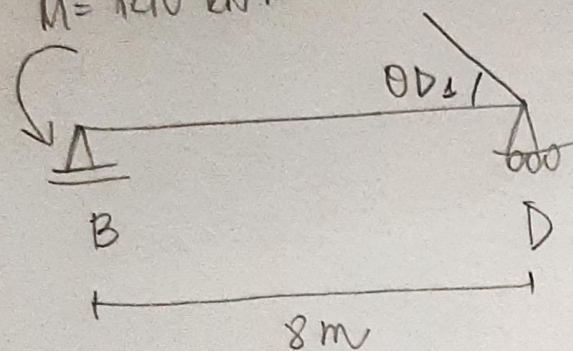 θD1
B
D
8m